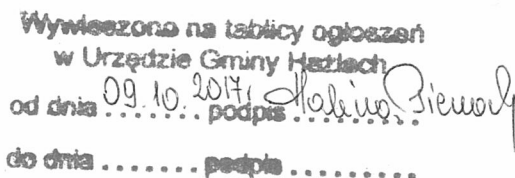 Wywieszono na tablicy ogłoszeń
w Urzędzie Gminy Hażlach
od dnia 09.10.2017, podpis Halina
do dnia ....... podpis ..........